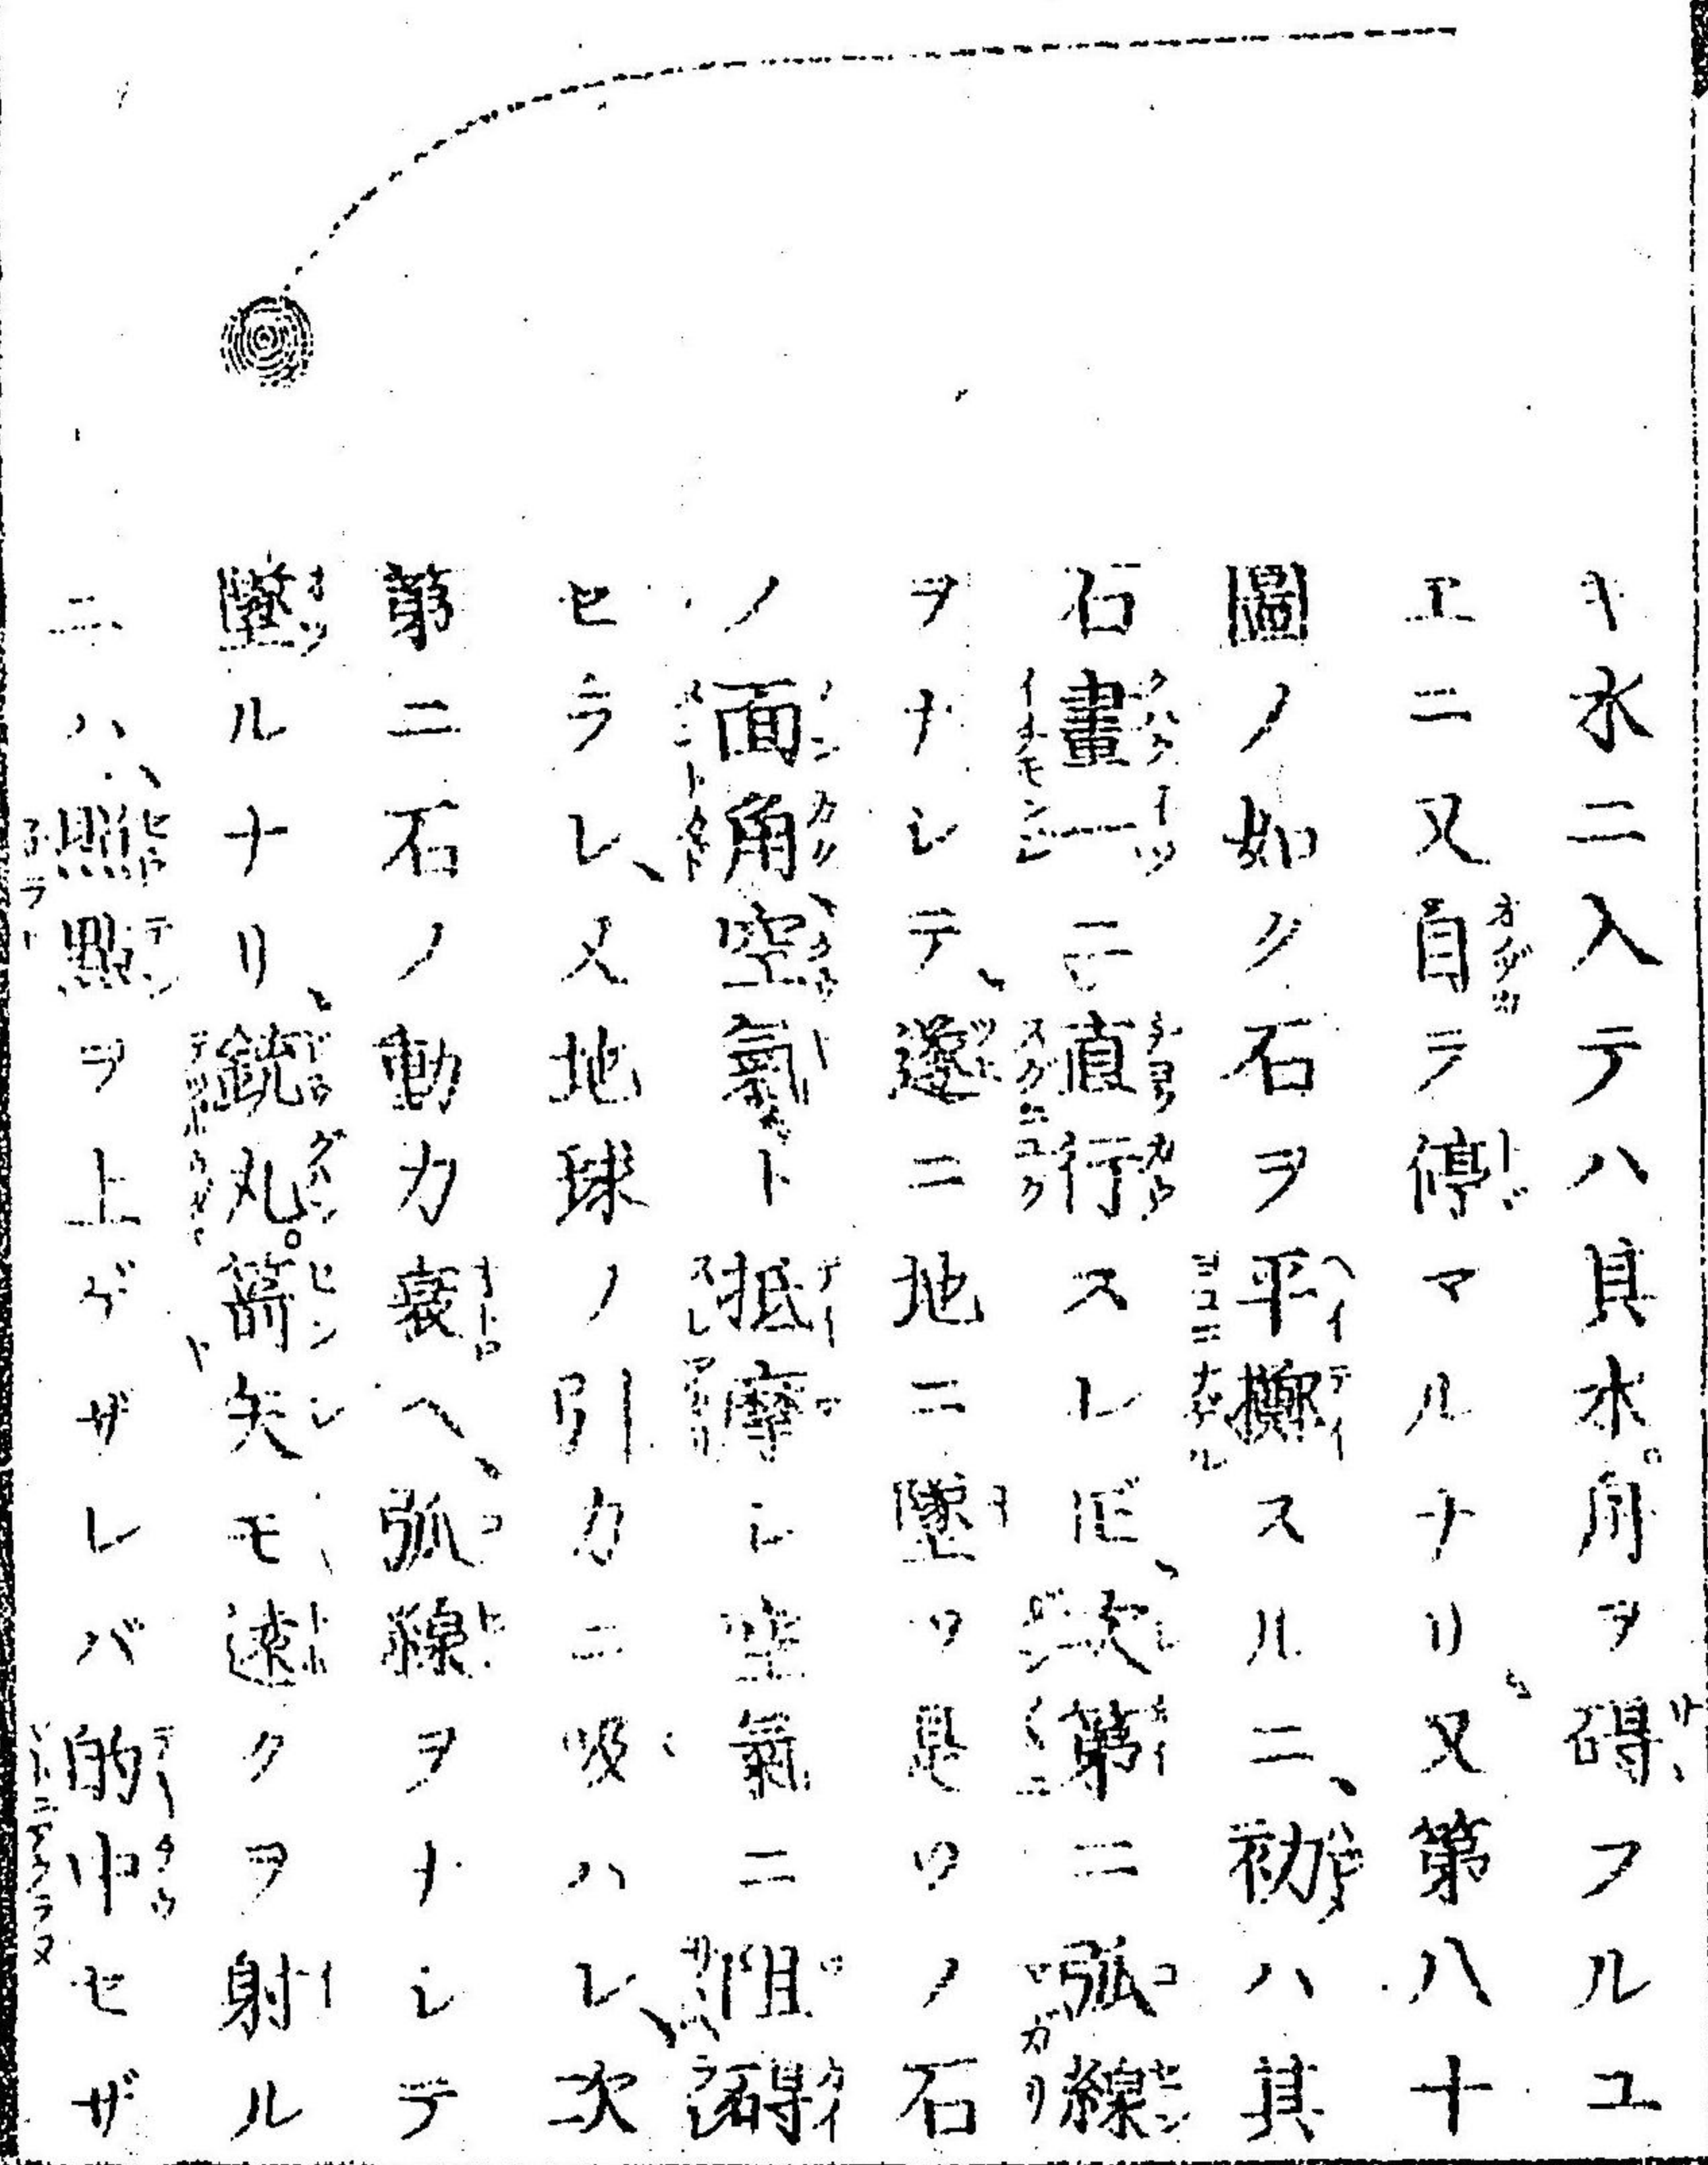 キ水ニ入テハ其水。舟ヲ碍フルユ
エニ又自ラ停マルナリ、又第八十
圖ノ如ク石ヲ平擲スルニ、初ハ其
石畫一ニ直行スレ𪜈、次第ニ弧線
ヲナシテ、遂ニ地ニ墜ツ是ツノ石
ノ面角、空氣ト抵摩シ空氣ニ阻碍
セラレ、又地球ノ引力ニ吸ハレ、次
第ニ石ノ動力衰ヘ、弧線ヲナシテ
墜ルナリ、銃丸。箭矢モ、遠クヲ射ル
ニハ、照點ヲ上ゲザレバ的中セザ